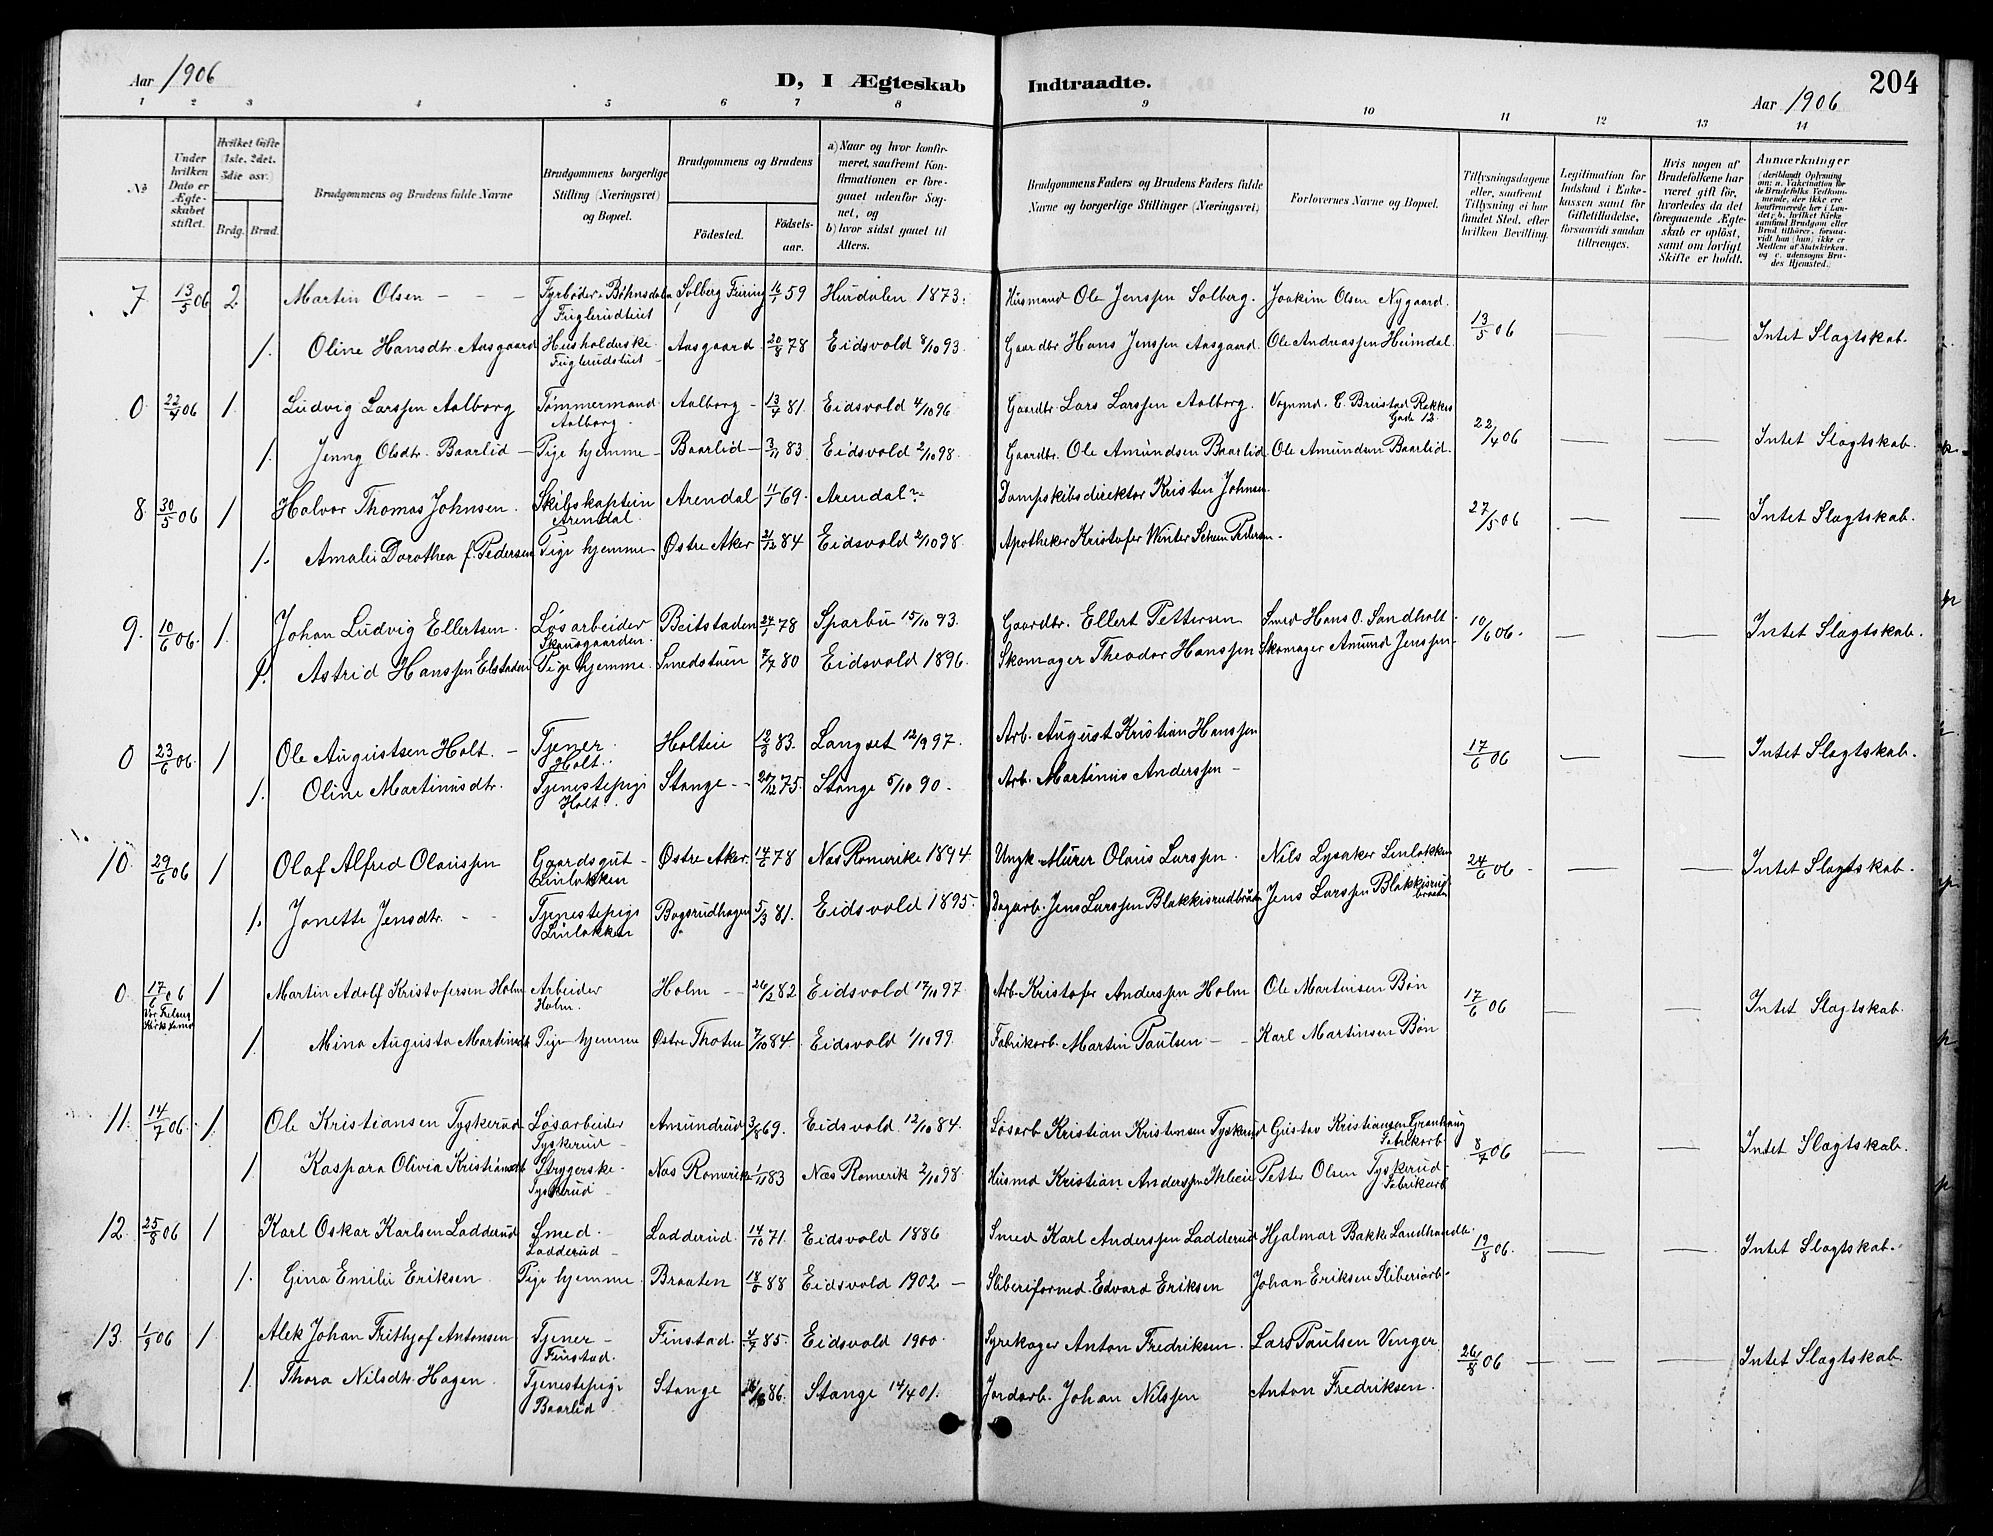 Aar 1906
D, I Ægteskab Indtraadte.
204
Aar 1906
1 2 3 4 5 6 7 8 9 10 11 12 13 14
№
Under hvilken Dato er Ægteskabet stiftet.
Hvilket Gifte 1ste, 2det, 3die osv.)
Brdg. Brud.
Brudgommens og Brudens fulde Navne
Brudgommens borgerlige Stilling (Næringsvei) og Bopæl.
Brudgommens og Brudens
Fødested.
Fødselsaar.
a) Naar og hvor konfirmeret, saafremt Konfirmationen er foregaaet udenfor Sognet, og
b) hvor sidst gaaet til Alters.
Brudgommens Faders og Brudens Faders fulde Navne og borgerlige Stillinger (Næringsvei)
Forlovernes Navne og Bopæl.
Tillysningsdagene eller, saafremt Tillysning ei har fundet Sted, efter hvilken Bevilling.
Legitimation for Indskud i Enkekassen samt for Giftetilladelse, forsaavidt saadan tiltrænges.
Hvis nogen af Brudefolkene har været gift før, hvorledes da det foregaaende Ægteskab er opløst, samt om lovligt Skifte er holdt.
Anmærkninger (deriblandt Oplysning om: a. Vakcination for de Brudefolks Vedkommende, der ikke ere konfirmerede her i Landet; b. hvilket Kirkesamfund Brudgom eller Brud tilhører, forsaavidt han (hun) ikke er Medlem af Statskirken, og c. udensogns Brudes Hjemsted.)
7. 13/5 06 2 Martin Olsen - - - Fyrbøder Bøhnsdalen Figlerudteiet Solberg Feiring 16/1 59 Hurdalen 1873. Husmand Ole Jenssen Solberg. Joakim Olsen Nygaard. 13/5 06 — — Intet Slagtskab.
1. Oline Hansdtr. Aasgaard Husholderske Figlerudteiet Aasgaard 20/8 78 Eidsvold 8/10 93. Gaardbr. Hans Jenssen Aasgaard. Ole Andreassen Heimdal.
0 22/4 06 1. Ludvig Larssen Aalborg Tømmermand Aalborg. Aalborg - 13/4 81. Eidsvold 4/10 96 Gaardbr. Lars Larssen Aalborg. Vognmd. C. Brustad Rakkes Gade 12. 22/4 06 — — Intet Slagtskab.
1. Jenny Olsdtr. Baarlid - Pige hjemme - Baarlid - 3/11 83 Eidsvold 2/10 98. Gaardbr. Ole Amundsen Baarlid Ole Amundsen Baarlid.
8. 30/5 06 1 Halvor Thomas Johnsen. Skibskaptein Arendal. Arendal 11/1 69. Arendal ?- Dampskibsdirektør Kristen Johnsen 27/5 06 — — Intet Slagtskab.
1. Amalie Dorothea f. Pedersen Pige hjemme - Østre Aker 21/12 84 Eidsvold 2/10 98. Apotheker Kristofer Winter Pedersen.
9. 10/6 06 1. Johan Ludvig Ellertsen. Løsarbeider Skousgaarden. Beitstaden 24/1 78 Sparbu 15/10 93. Gaardbr. Ellert Pettersen Smed Hans O. Sandholt 10/6 06. — — Intet Slagtskab.
1. Astrid Hanssen Elstaden Pige hjemme. Smedstuen 7/7 80 Eidsvold 1896. Skomager Theodor Hanssen Skomager Amund Jenssen
0 23/6 06 1 Ole Augustsen Holt. - Tjener. Holt. Holteie 12/3 83. Langset 12/9 97. Arb. August Kristian Hanssen 17/6 06 — — Intet Slagtskab.
1. Oline Martinusdtr. Tjenestepige Holt. Stange - 24/12 75. Stange 5/10 90. Arb. Martinus Anderssen -
10. 29/6 06 1 Olaf Alfred Olaussen Gaardsgut - Linløkken Østre Aker 14/6 78 Nas Romerike 1894. Ungk. Murer Olaus Larssen. Nils Lysaker Linløkken 24/6 06 — — Intet Slagtskab.
1. Jonette Jensdtr. - - Tjenestepige Linløkken Bøgsrudhagen 5/3 81. Eidsvold 1895. Dagarb. Jens Larssen Blakkisrudbraaten Jens Larssen Blakkisrudbraaten
0. 17/6 06 Vor Frelsers Kirke 1 Martin Adolf Kristofersen Holm Arbeider Holm. Holm - 26/12 82 Eidsvold 17/10 97. Arb. Kristofer Anderssen Holm Ole Martinsen Bøn 17/6 06 — — Intet Slagtskab.
1. Mina Augusta Martinsdt. Pige hjemme Østre Thoten 7/10 84. Eidsvold 1/10 99. Fabrikarb. Martin Paulsen - - Karl Martinsen Bøn
11. 14/7 06. 1 Ole Kristiansen Tyskerud Løsarbeider Tyskerud - Amundrud 3/8 69. Eidsvold 12/10 84. Løsarb. Kristian Kristensen Tyskerud Gustav Kristiansen Granhaug Fabrikarb. 8/7 06 — — Intet Slagtskab.
1 Kaspara Olivia Kristiansdt. Strygerske - Tyskerud Nas Romerike 1/11 83 Næs Romerik 2/10 98. Husmd Kristian Anderssen Ihleeie Petter Olsen Tyskerud - Fabrikarb.
12. 25/8 06 1 Karl Oskar Karlsen Ladderud Smed. Ladderud - Ladderud. 14/10 71. Eidsvold 1886 Smed Karl Anderssen Ladderud Hjalmar Bakke Landhandler. 19/8 06. — — Intet Slagtskab.
1. Gina Emilie Eriksen Pige hjemme. Braaten 18/8 88 Eidsvold 1902 - Sliberiformd. Edvard Eriksen Johan Eriksen Sliberiarb.
13. 1/9 06 1 Alek Johan Frithjof Antonsen Tjener - Finstad. Finstad. 4/7 85. Eidsvold 1900. Syrekoger Anton Fredriksen. Lars Paulsen Venger 26/8 06 — — Intet Slagtskab
1. Thora Nilsdtr. Hagen. Tjenestepige Baarlid Stange 86. Stange 14/4 01. Jordarb. Johan Nilssen Anton Fredriksen.